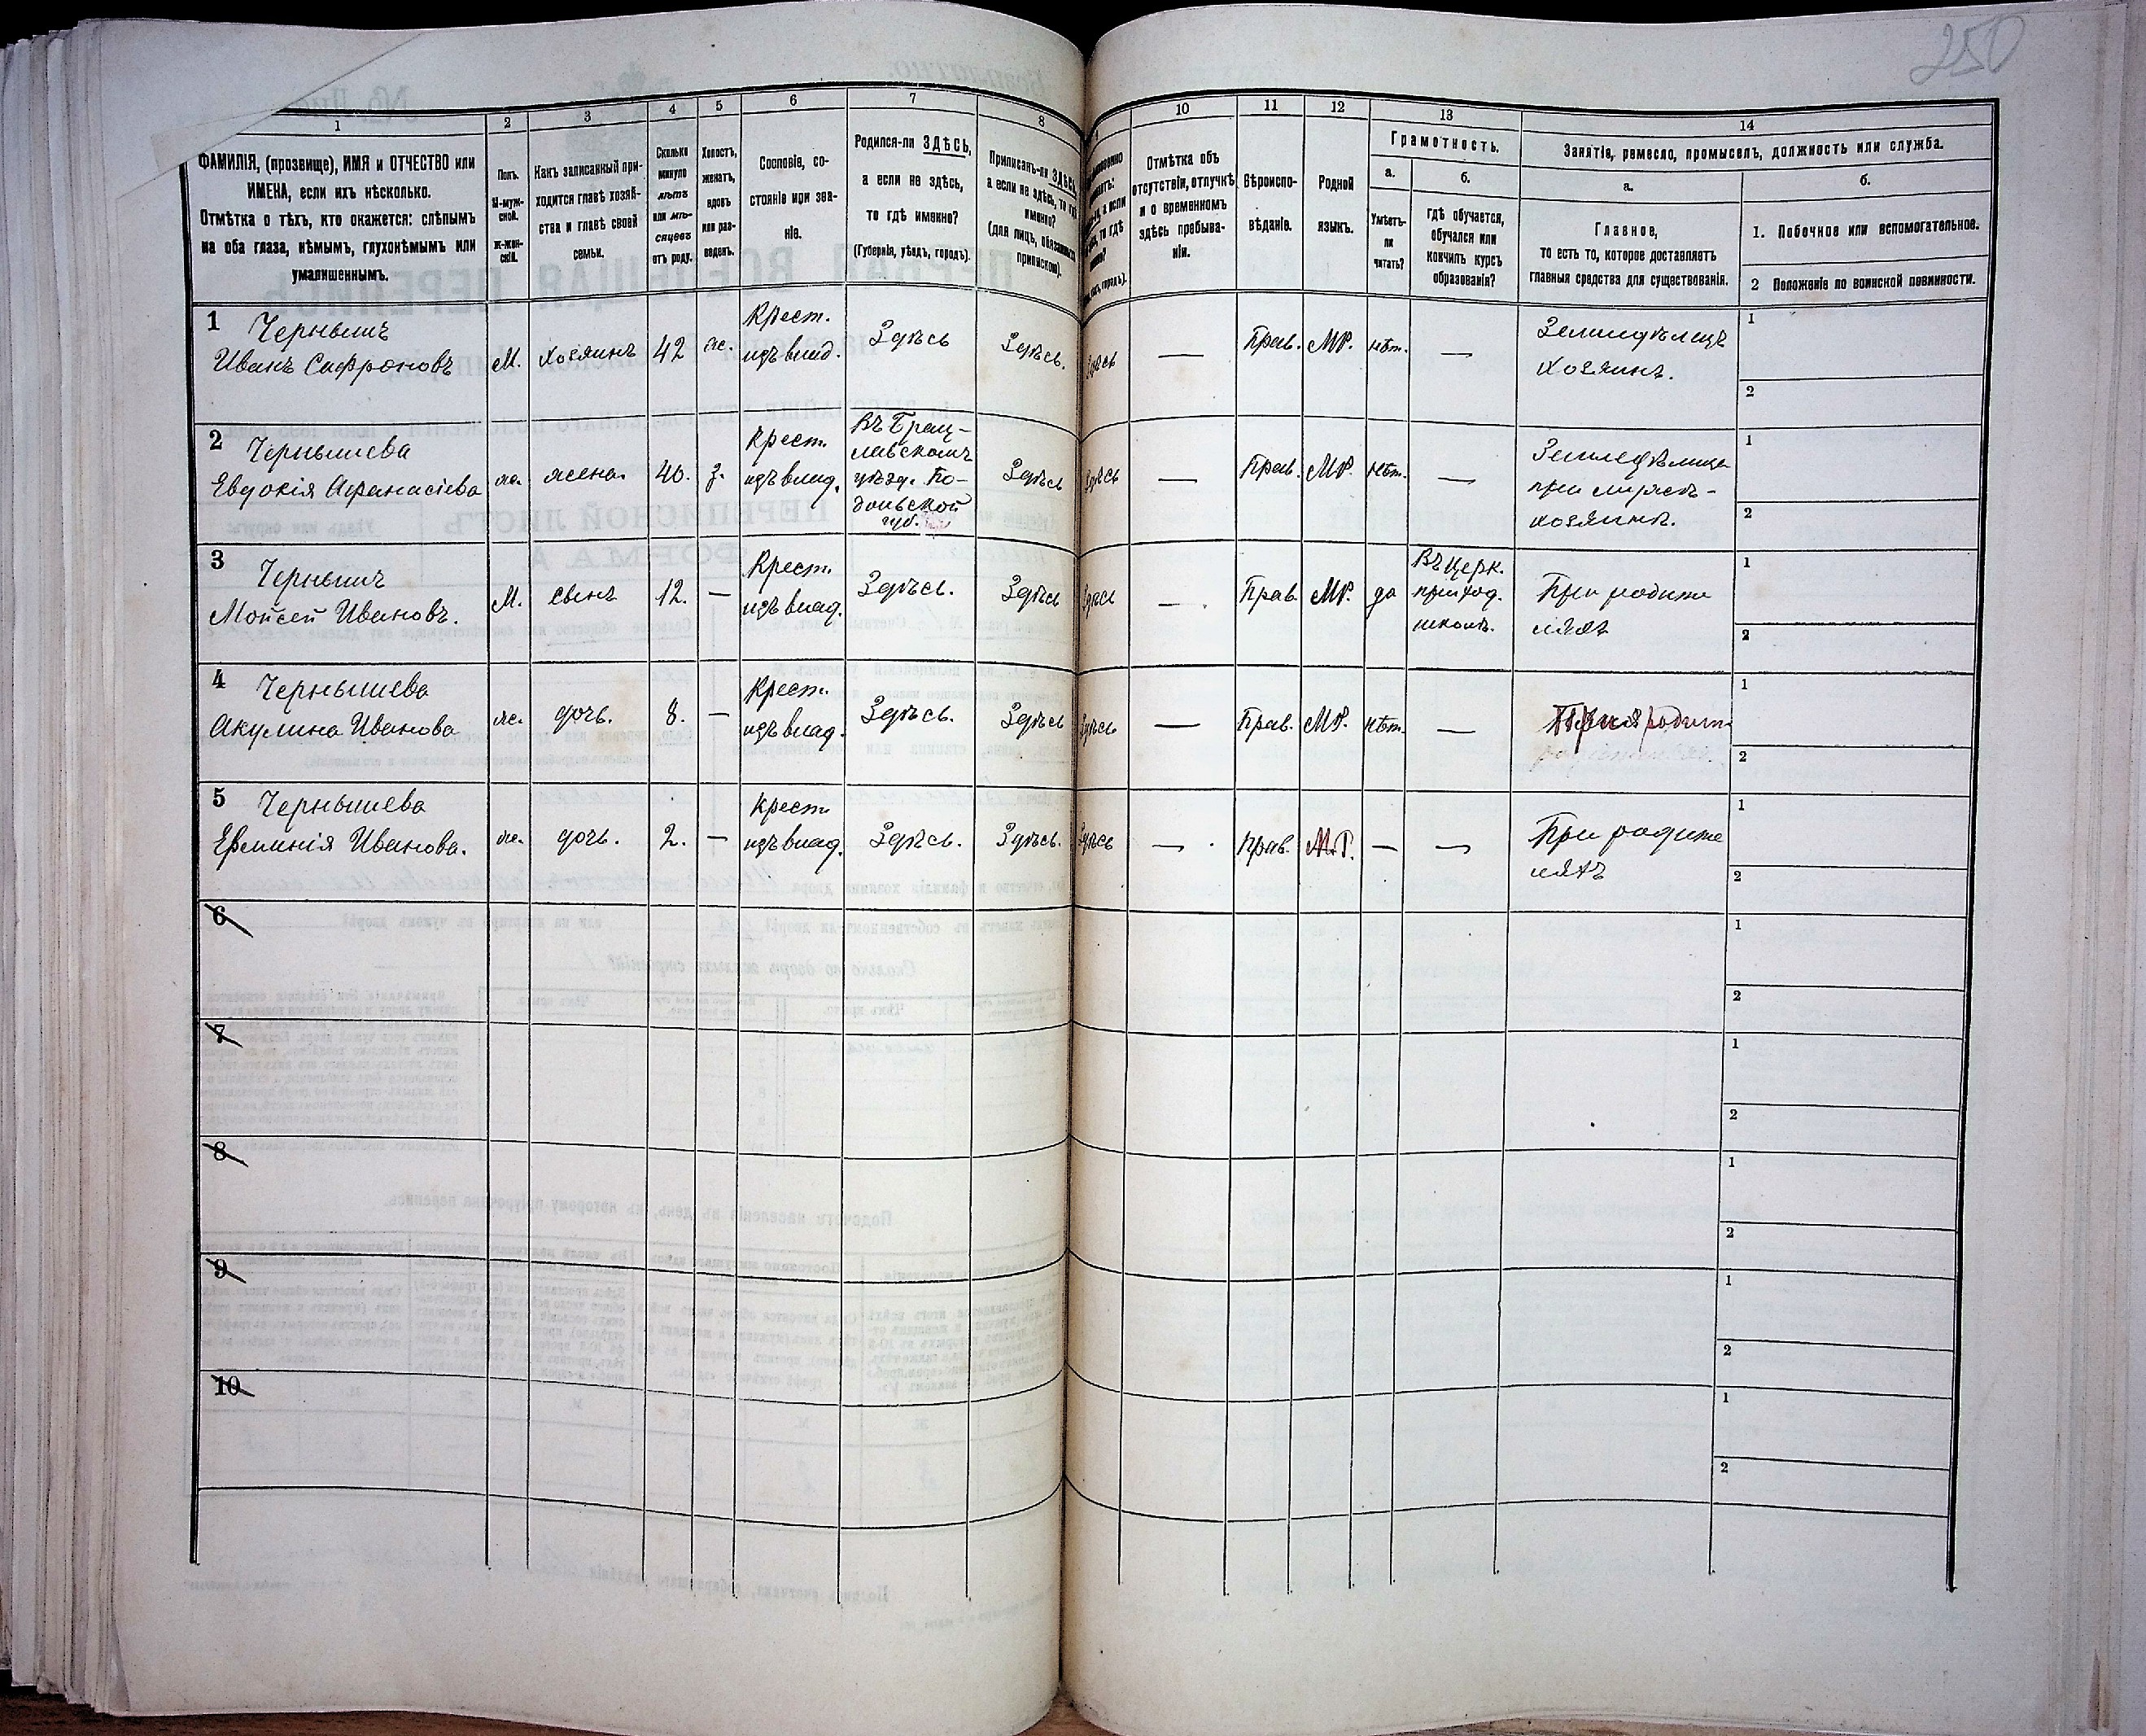 250
1
2
3
4
5
6
7
8
10
11
12
13
14
ФАМИЛІЯ, (прозвище), ИМЯ и ОТЧЕСТВО или
ИМЕНА, если ихъ нѣсколько.
Отмѣтка о тѣхъ, кто окажется: слѣпымъ
на оба глаза, нѣмымъ, глухонѣмымъ или
умалишеннымъ.
Полъ.
М-муж-
ской.
Ж-жен-
скій.
Какъ записанный при-
ходится главѣ хозяй-
ства и главѣ своей
семьи.
Сколько
минуло
лѣтъ
или мѣ-
сяцевъ
отъ роду.
Холостъ,
женатъ,
вдовъ
или раз-
веденъ.
Сословіе, со-
стояніе или зва-
ніе.
Родился-ли ЗДѢСЬ,
а если не здѣсь,
то гдѣ именно?
(Губернія, уѣздъ, городъ).
Приписанъ-ли ЗДѢСЬ,
а если не здѣсь, то гдѣ
именно?
(для лицъ, обязанныхъ
припиской).
Отмѣтка объ
отсутствіи, отлучкѣ
и о временномъ
здѣсь пребыва-
ніи.
Вѣроиспо-
вѣданіе.
Родной
языкъ.
Грамотность.
а.
Умѣетъ-
ли
читать?
б.
гдѣ обучается,
обучался или
кончилъ курсъ
образованія?
Занятіе, ремесло, промыселъ, должность или служба.
а.
Главное,
то есть то, которое доставляетъ
главныя средства для существованія.
б.
1. Побочное или вспомогательное.
2 Положеніе по воинской повинности.
1 Чернышъ
Иванъ Сафроновъ
М.
хозяинъ
42
ж.
Крест.
изъ влад.
Здѣсь
Здѣсь.
Здѣсь
—
Прав.
МР.
нѣт.
—
Земледѣлецъ
хозяинъ.
1
2
2 Чернышева
Евдокія Афанасіева
ж.
жена.
40.
з.
Крест.
изъ влад.
Въ Брац-
лавскомъ
уѣзд. По-
дольской
губ.
Здѣсь
Здѣсь
—
Прав.
МР.
нѣт.
—
Земледѣлица
при мужѣ-
хозяинѣ.
1
2
3 Чернышъ
Мойсей Ивановъ.
М.
сынъ
12.
—
Крест.
изъ влад.
Здѣсь.
Здѣсь
Здѣсь
—
Прав.
МР.
да
Въ церк.
приход.
школѣ.
При родите
ляхъ
1
2
4 Чернышева
Акулина Иванова
ж.
дочь.
8.
—
Крест.
изъ влад.
Здѣсь.
Здѣсь
Здѣсь
—
Прав.
МР.
нѣт.
—
При родит
1
2
5 Чернышева
Ефминія Иванова.
ж.
дочь.
2.
—
Крест.
изъ влад.
Здѣсь.
Здѣсь.
Здѣсь
—
Прав.
М.Р.
—
—
При родите
ляхъ
1
2
6
1
2
7
1
2
8
1
2
9
1
2
10
1
2